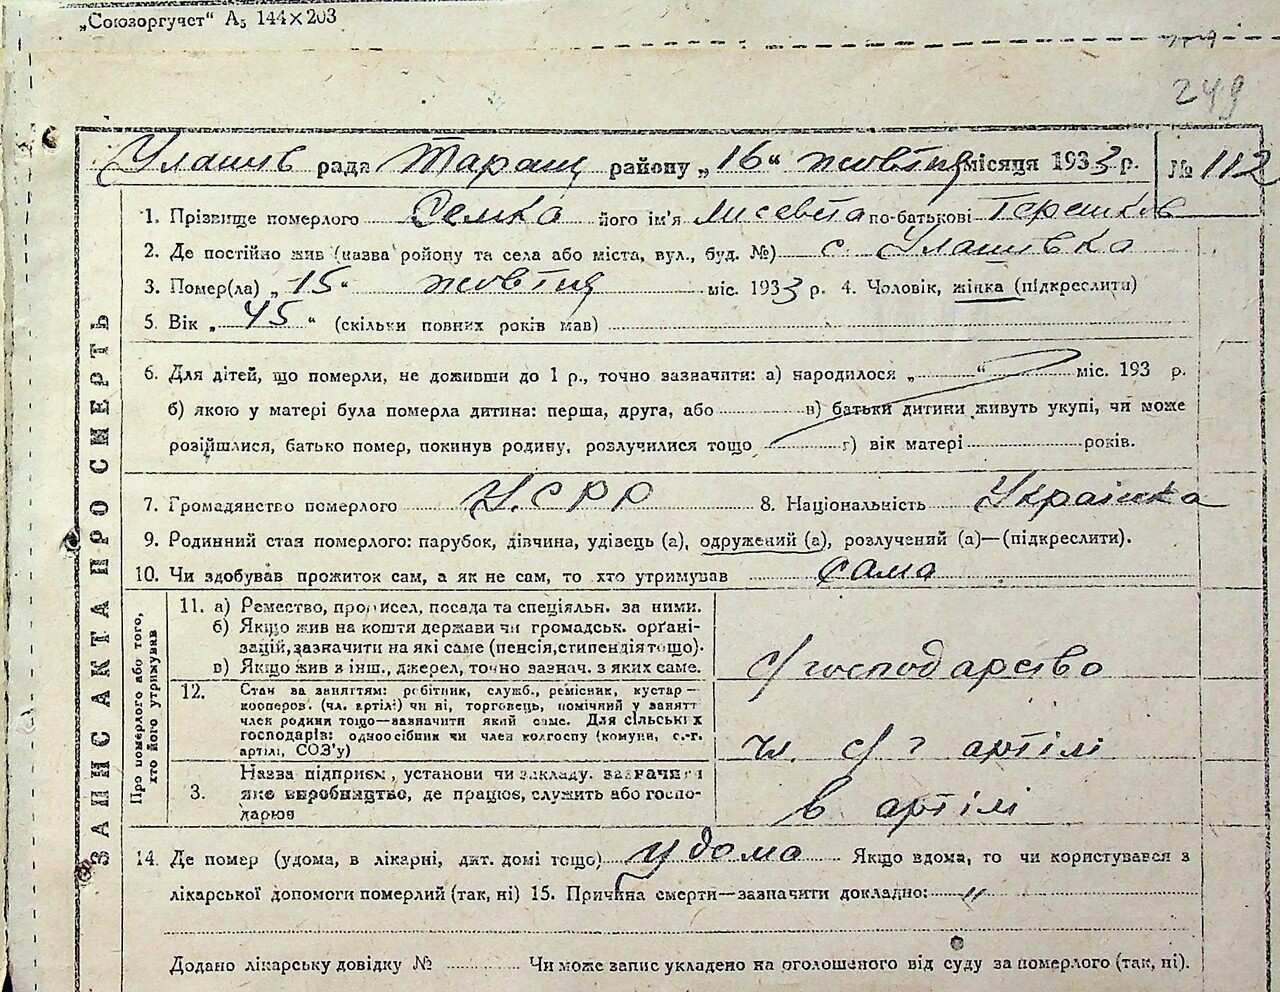 „Союзоргучет“ А₅ 144×203
249
Улашів рада Таращ району „16“ жовтня місяця 1933 р. № 112
1. Прізвище померлого Семка його ім'я Лисевета по-батькові Терешков
2. Де постійно жив (назва ройону та села або міста, вул., буд. №) с. Улашівка
3. Помер(ла) „15“ жовтня міс. 1933 р. 4. Чоловік, жінка (підкреслити)
5. Вік „45“ (скільки повних років мав)
6. Для дітей, що померли, не доживши до 1 р., точно зазначити: а) народилося „ “ міс. 193 р.
б) якою у матері була померла дитина: перша, друга, або в) батьки дитини живуть укупі, чи може
розійшлися, батько помер, покинув родину, розлучилися тощо г) вік матері років.
7. Громадянство померлого У.СРР 8. Національність Українка
9. Родинний стая померлого: парубок, дівчина, удівець (а), одружений (а), розлучений (а)—(підкреслити).
10. Чи здобував прожиток сам, а як не сам, то хто утримував сама
ЗАПИС АКТА ПРО СМЕРТЬ
Про померлого або того,
хто його утримував
11. а) Ремество, промисел, посада та спеціяльн. за ними.
б) Якщо жив на кошти держави чи громадськ. орґані-
зацій, зазначити на які саме (пенсія, стипендія тощо).
в) Якщо жив з інш., джерел, точно зазнач. з яких саме.
с/господарство
12. Стан за заняттям: робітник, служб., ремісник, кустар—
кооперов. (чл. артілі) чи ні, торговець, помічний у занятт
член родини тощо—зазначити який саме. Для сільських
господарів: одноосібник чи член колгоспу (комуни, с.-г.
артілі, СОЗ'у)
чл. с/г артілі
3. Назва підприєм, установи чи закладу. зазначити
яке виробництво, де працює, служить або госпо-
дарює
в артілі
14. Де помер (удома, в лікарні, дит. домі тощо) удома Якщо вдома, то чи користувався з
лікарської допомоги померлий (так, ні) 15. Причина смерти—зазначити докладно: „
Додано лікарську довідку № Чи може запис укладено на оголошеного від суду за померлого (так, ні).